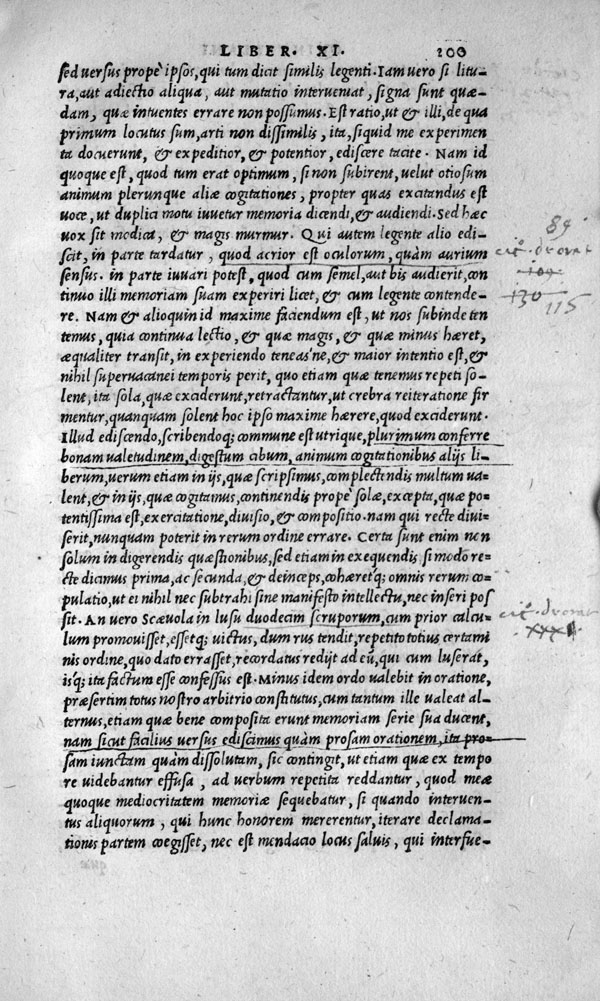 LIBER. XI. 200
sed versus propè ipsos, qui tum dicat similis legenti. Iam vero si litu-
ra, aut adiectio aliqua, aut mutatio interveniat, signa sunt quæ-
dam, quæ intuentes errare non possumus. Est ratio, ut & illi, de qua
primum locutus sum, arti non dissimilis, ita, siquid me experimen
ta docuerunt, & expeditior, & potentior, ediscere tacite. Nam id
quoque est, quod tum erat optimum, si non subirent, velut otiosum
animum plerunque aliæ cogitationes, propter quas excitandus est
uoce, ut duplici motu iuvetur memoria dicendi, & audiendi. Sed hæc
vox sit modica, & magis murmur. Qui autem legente alio edi-
scit, in parte tardatur, quod acrior est oculorum, quàm aurium
sensus. in parte iuvari potest, quod cum semel, aut bis audierit, con
tinuo illi memoriam suam experiri licet, & cum legente contende-
re. Nam & alioquin id maxime faciendum est, ut nos subinde ten
temus, quia continua lectio, & quæ magis, & quæ minus hæret,
æqualiter transit, in experiendo teneas'ne, & maior intentio est, &
nihil supervacanei temporis perit, quo etiam quæ tenemus repeti so-
lent, ita sola, quæ exciderunt, retractantur, ut crebra reiteratione fir
mentur, quanquam solent hoc ipso maxime hærere, quod exciderunt.
Illud ediscendo, scribendoq; commune est utrique, plurimum conferre
bonam valetudinem, digestum cibum, animum cogitationibus alijs li-
berum, verum etiam in ijs, quæ scripsimus, complectendis multum va-
lent, & in ijs, quæ cogitamus, continendis propè solæ, excepta, quæ po-
tentissima est, exercitatione, divisio, & compositio. nam qui recte divi-
serit, nunquam poterit in rerum ordine errare. Certa sunt enim non
solum in digerendis quæstionibus, sed etiam in exequendis si modo re-
cte dicimus prima, ac secunda, & deinceps, cohæretq; omnis rerum co-
pulatio, ut ei nihil nec subtrahi sine manifesto intellectu, nec inseri pos
sit. An vero Scævola in lusu duodecim scruporum, cum prior calcu-
lum promovisset, essetq; victus, dum rus tendit, repetito totius certami
nis ordine, quo dato errasset, recordatus redijt ad eũ, qui cum luserat,
isq; ita factum esse confessus est. Minus idem ordo valebit in oratione,
præsertim totus nostro arbitrio constitutus, cum tantum ille valeat al-
ternus, etiam quæ bene composita erunt memoriam serie sua ducent,
nam sicut facilius versus ediscimus quàm prosam orationem, ita pro-
sam iunctam quàm dissolutam, sic contingit, ut etiam quæ ex tempo
re videbantur effusa, ad verbum repetita reddantur, quod meæ
quoque mediocritatem memoriæ sequebatur, si quando interven-
tus aliquorum, qui hunc honorem mererentur, iterare declama-
tionis partem coegisset, nec est mendacio locus salvis, qui interfue-
89
109
130 115